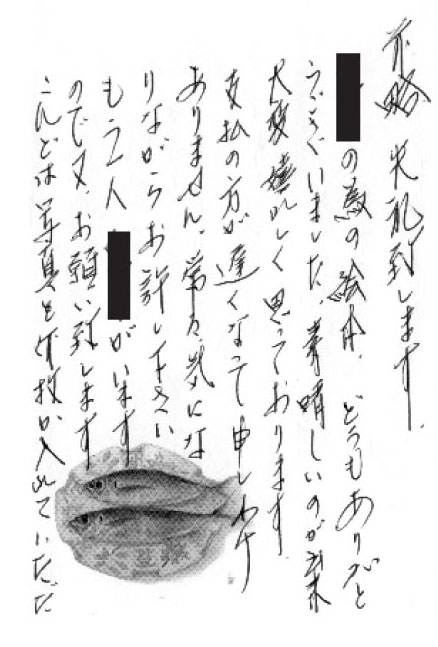 前略 失礼致します
の為の絵本、どうもありがと
うございました、素晴しいのが出来
大変嬉しく思っております
支払の方が遅くなって申しわけ
ありません、常々気にな
りながらお許し下さい
もう一人 がいます
ので又、お願い致します
こんどは写真を 枚か入れていただ